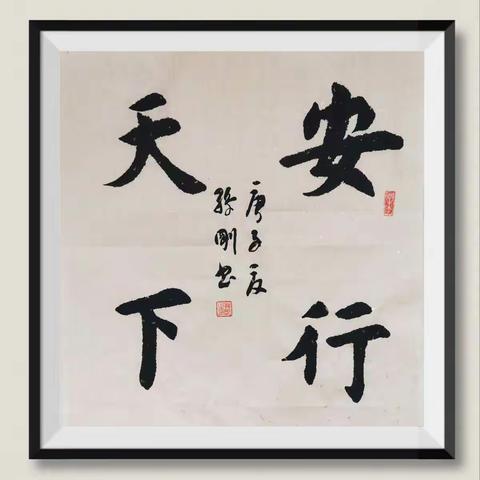 安行
天下
庚子夏
孫剛书